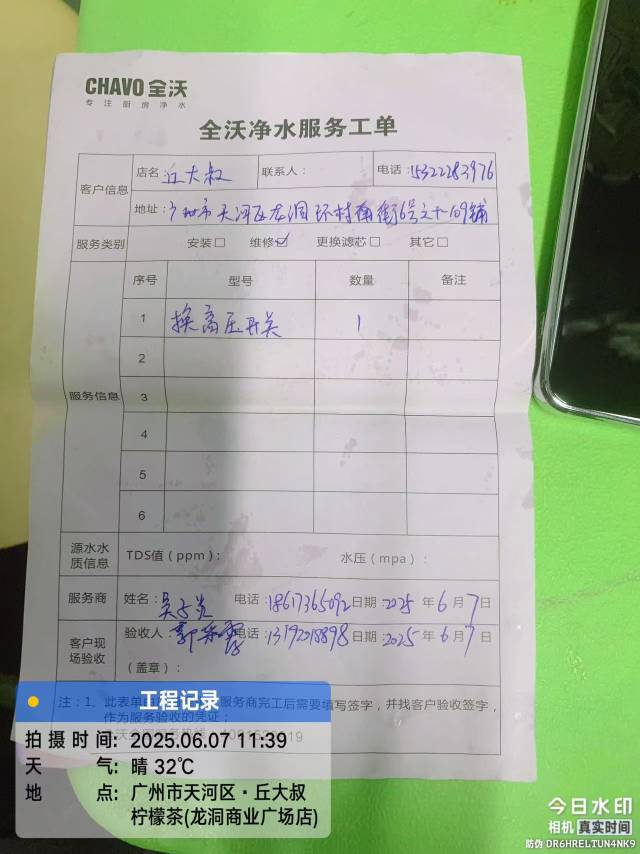 CHAVO 全沃
专注厨房净水
全沃净水服务工单
客户信息
店名: 丘大叔 联系人: 电话: 15322283976
地址: 广州市天河区龙洞环村南街6号之十109铺
服务类别 安装□ 维修☑ 更换滤芯□ 其它□
服务信息
序号 型号 数量 备注
1 换高压开关 1
2
3
4
5
6
源水水质信息 TDS值(ppm): 水压(mpa):
服务商 姓名: 电话:18617365092 日期:2025年6月7日
客户现场验收 验收人: 电话: 日期:2025年6月7日
(盖章):
注:1、此表单 服务商完工后需要填写签字,并找客户验收签字,
作为服务验收的凭证;
工程记录
拍摄时间: 2025.06.07 11:39
天气: 晴 32℃
地点: 广州市天河区·丘大叔
柠檬茶(龙洞商业广场店)
今日水印
相机 真实时间
防伪 DR6HRELTUN4NK9